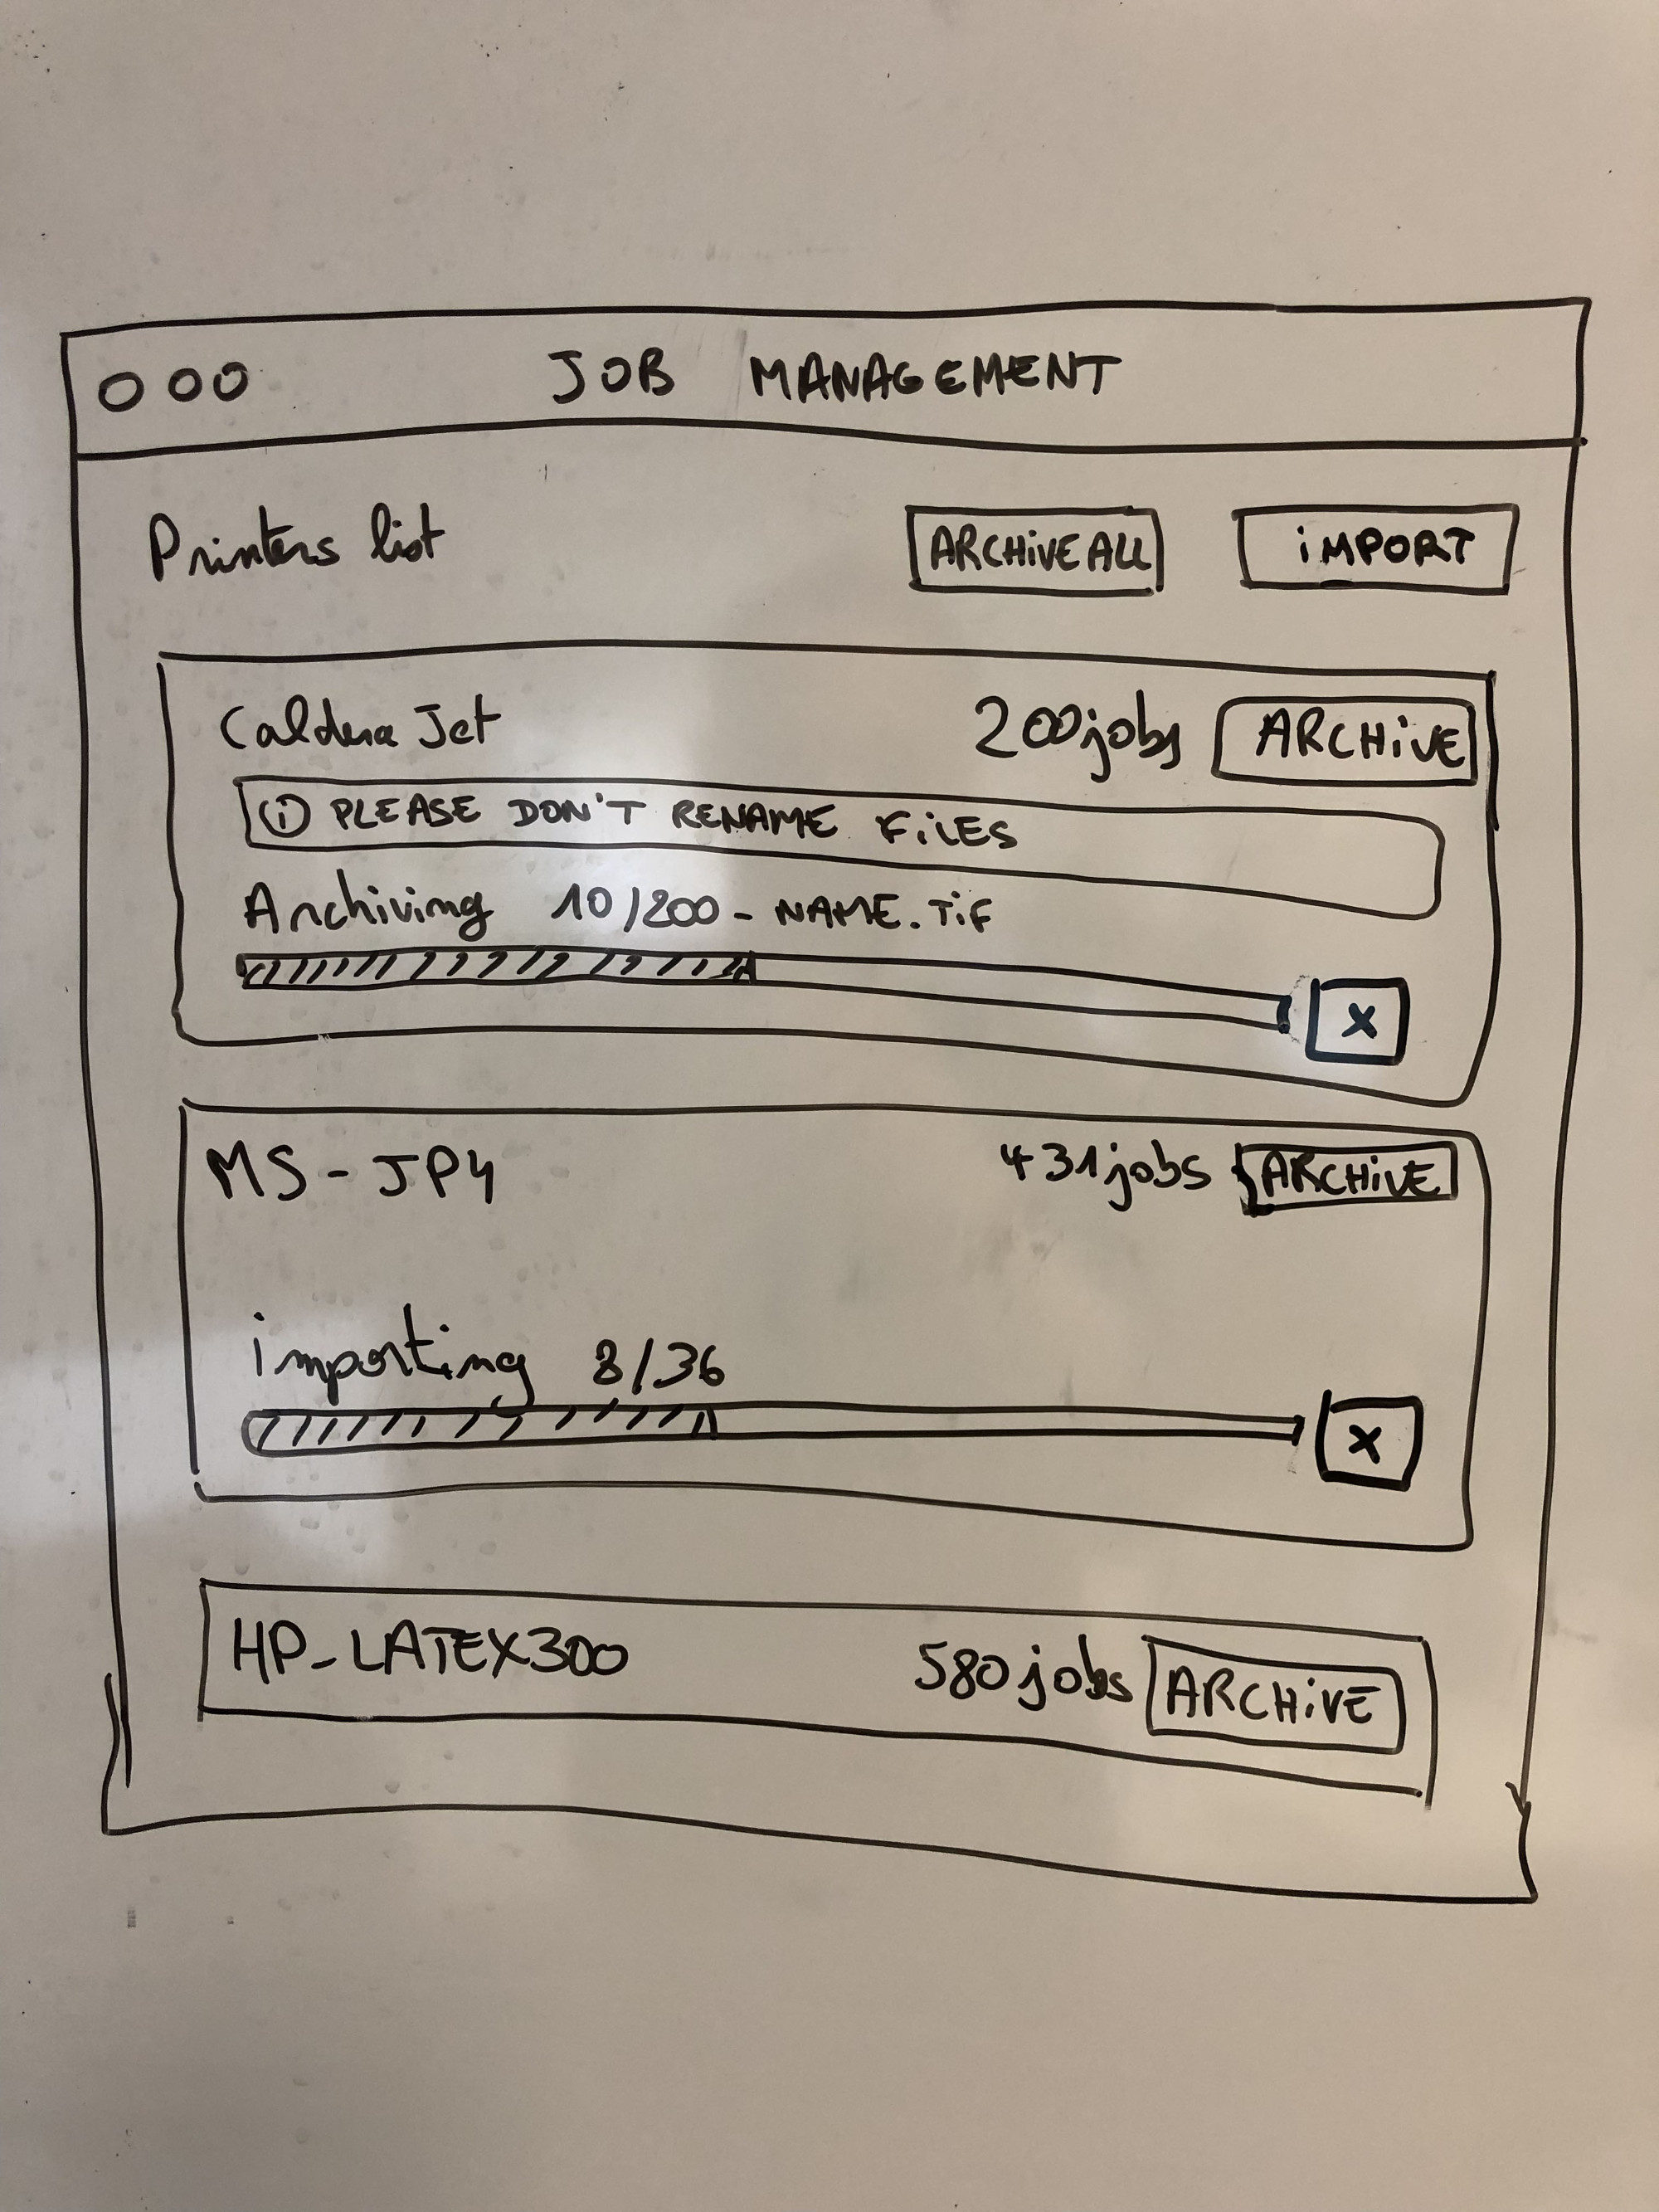 JOB MANAGEMENT
Printers list ARCHIVE ALL iMPORT
Caldera Jet 200 jobs ARCHiVE
i PLEASE DON'T RENAME FiLES
Archiving 10/200 - NAME.TiF
x
MS-JP4 431 jobs ARCHiVE
importing 8/36
x
HP_LATEX300 580 jobs ARCHiVE